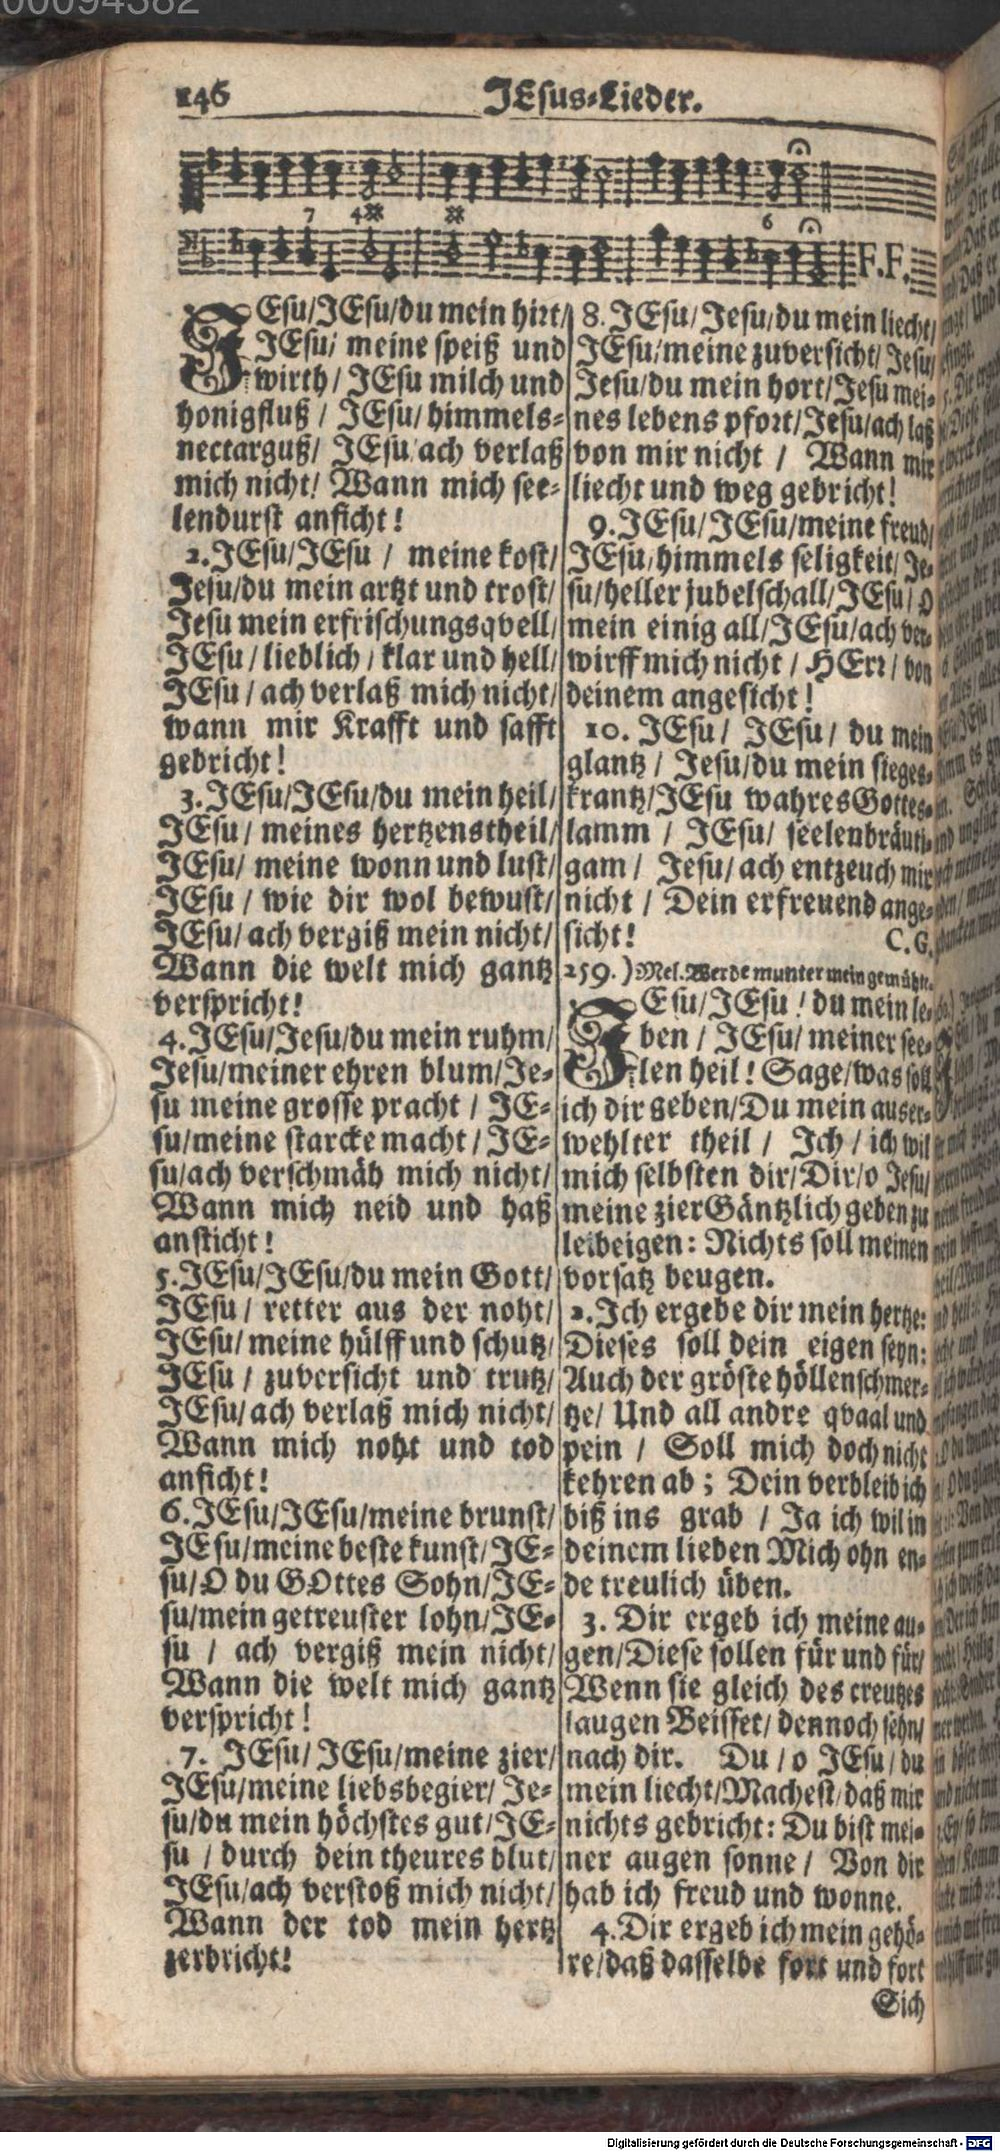 00094382
146 JEsus-Lieder.
7 4
6
F.F.
JEsu/JEsu/du mein hirt/
JEsu/ meine speiß und
wirth/ JEsu milch und
honigfluß / JEsu/ himmels-
nectarguß/ JEsu ach verlaß
mich nicht/ Wann mich see-
lendurst anficht!
2.JEsu/JEsu / meine kost/
Jesu/du mein artzt und trost/
Jesu mein erfrischungsqvell/
JEsu/ lieblich/ klar und hell/
JEsu / ach verlaß mich nicht/
wann mir Krafft und safft
gebricht!
3.JEsu/JEsu/du mein heil/
JEsu/ meines hertzenstheil/
JEsu/ meine wonn und lust/
JEsu / wie dir wol bewust/
JEsu/ ach vergiß mein nicht/
Wann die welt mich gantz
verspricht!
4.JEsu/Jesu/du mein ruhm/
Jesu/meiner ehren blum/Je-
su meine grosse pracht / JE-
su/meine starcke macht / JE-
su/ach verschmäh mich nicht/
Wann mich neid und haß
ansticht!
5.JEsu/JEsu/du mein Gott/
JEsu / retter aus der noht/
JEsu/ meine hülff und schutz/
JEsu / zuversicht und trutz/
JEsu/ ach verlaß mich nicht/
Wann mich noht und tod
anficht!
6.JEsu/JEsu/meine brunst/
JEsu/meine beste kunst/ JE-
su/O du GOttes Sohn/JE-
su/mein getreuster lohn/JE-
su / ach vergiß mein nicht/
Wann die welt mich gantz
verspricht!
7. JEsu/ JEsu/meine zier/
JEsu/meine liebsbegier/ Je-
su/du mein höchstes gut/JE-
su / durch dein theures blut/
JEsu/ach verstoß mich nicht/
Wann der tod mein hertz
zerbricht!
8.JEsu/ Jesu/du mein liecht/
JEsu/meine zuversicht/ Jesu/
Jesu/du mein hort/Jesu mei-
nes lebens pfort/Jesu/ach laß
von mir nicht / Wann mir
liecht und weg gebricht!
9.JEsu/JEsu/meine freud/
JEsu/himmels seligkeit/ Je-
su/heller jubelschall/JEsu/ O
mein einig all/JEsu/ach ver-
wirff mich nicht / HErr/ von
deinem angesicht!
10. JEsu/ JEsu/ du mein
glantz / Jesu/du mein sieges-
krantz/JEsu wahres Gottes-
lamm / JEsu/ seelenbräuti-
gam / Jesu/ ach entzeuch mir
nicht / Dein erfreuend ange-
sicht! C.G.
259.) Mel. Werde munter mein gemühte.
JEsu/JEsu / du mein le-
ben / JEsu/ meiner see-
len heil! Sage/was soll
ich dir geben/Du mein auser-
wehlter theil / Ich / ich wil
mich selbsten dir/Dir/o Jesu/
meine zier Gäntzlich geben zu
leibeigen: Nichts soll meinen
vorsatz beugen.
2.Ich ergebe dir mein hertze:
Dieses soll dein eigen seyn:
Auch der gröste höllenschmer-
tze/ Und all andre qvaal und
pein / Soll mich doch nicht
kehren ab; Dein verbleib ich
biß ins grab / Ja ich wil in
deinem lieben Mich ohn en-
de treulich üben.
3. Dir ergeb ich meine au-
gen/Diese sollen für und für/
Wenn sie gleich des creutzes
laugen Beisset/ dennoch sehn/
nach dir. Du/o JEsu/du
mein liecht/Machest/daß mir
nichts gebricht: Du bist mei-
ner augen sonne / Von dir
hab ich freud und wonne.
4.Dir ergeb ich mein gehö-
re/daß dasselbe fort und fort
Sich
Digitalisierung gefördert durch die Deutsche Forschungsgemeinschaft - DFG